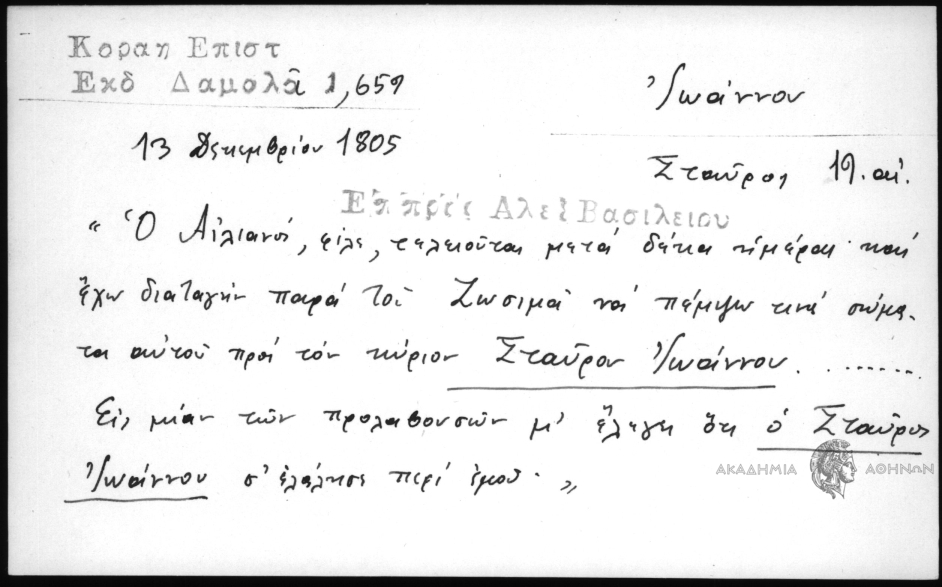 Κοραη Επιστ
Εκδ Δαμαλᾶ 1,659
Ἰωάννου
13 Δεκεμβρίου 1805
Σταῦρος 19. αἰ.
Επ πρὸς Αλεξ Βασιλειου
“ Ὁ Αἰλιανός, φίλε, τελειοῦται μετά δέκα ἡμέρας· καί
ἔχω διαταγήν παρά τοῦ Ζωσιμᾶ νά πέμψω τινά σώμα-
τα αὐτοῦ πρός τόν κύριον Σταῦρον Ἰωάννου. ........
Εἰς μίαν τῶν προλαβουσῶν μ' ἔλεγες ὅτι ὁ Σταῦρος
Ἰωάννου σ' ἐλάλησε περί ἐμοῦ· „
ΑΚΑΔΗΜΙΑ ΑΘΗΝΩΝ